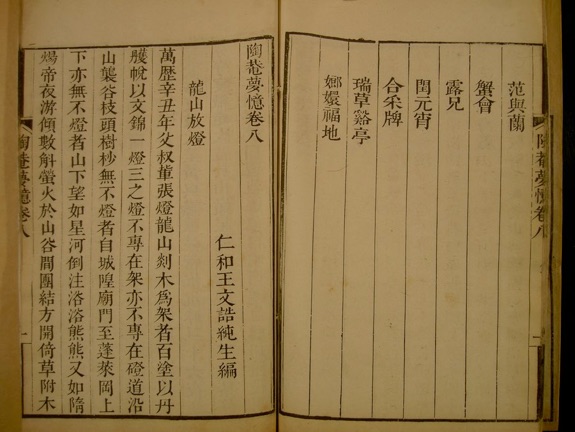 范與蘭
蟹會
露兄
閏元宵
合采牌
瑞草谿亭
嫏嬛福地
陶菴夢憶卷八
陶菴夢憶卷八
仁和王文誥純生編
龍山放燈
萬歷辛丑年父叔輩張燈龍山剡木爲架者百塗以丹
雘帨以文錦一燈三之燈不專在架亦不專在磴道沿
山襲谷枝頭樹杪無不燈者自城隍廟門至蓬萊岡上
下亦無不燈者山下望如星河倒注浴浴熊熊又如隋
煬帝夜游傾數斛螢火於山谷間團結方開倚草附木
陶菴夢憶卷八
一